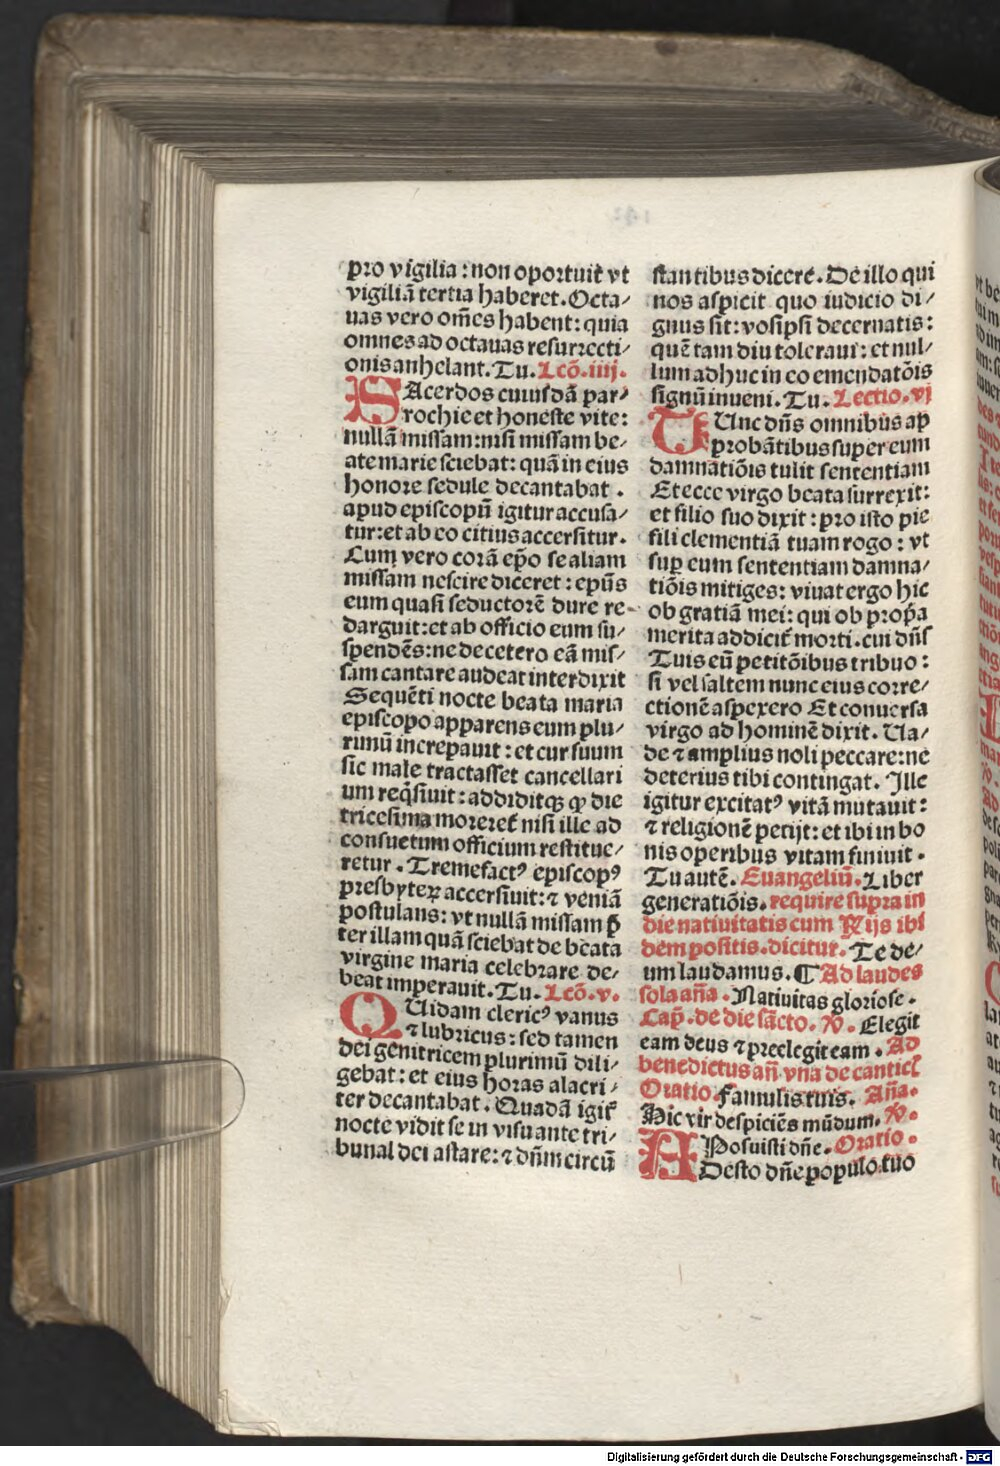 pro vigilia : non oportuit vt
vigiliā tertia haberet. Octa/
uas vero om̄es habent: quia
omnes ad octauas resurrecti/
onis anhelant. Tu. Lcō. iiij.
SAcerdos cuiusdā par/
rochie et honeste vite:
nullā missam: nisi missam be/
ate marie sciebat: quā in eius
honore sedule decantabat .
apud episcopū igitur accusa/
tur: et ab eo citius accersitur.
Cum vero corā ep̄o se aliam
missam nescire diceret : ep̄us
eum quasi seductorē dure re-
darguit: et ab officio eum su/
spendēs: ne de cetero eā mis/
sam cantare audeat interdixit
Sequēti nocte beata maria
episcopo apparens eum plu/
rimū increpauit : et cur suum
sic male tractasset cancellari
um reqͥsiuit : addiditqꝫ ꝙ die
tricesima moreret᷑ nisi ille ad
consuetum officium restitue/
retur . Tremefactꝰ episcopꝰ
presbyteꝝ accersiuit: ⁊ veniā
postulans: vt nullā missam p̄
ter illam quā sciebat de beata
virgine maria celebrare de/
beat imperauit. Tu. Lcō. v.
QUidam clericꝰ vanus
⁊ lubricus: sed tamen
dei genitricem plurimū dili/
gebat: et eius horas alacri/
ter decantabat . Quadā igit᷑
nocte vidit se in visu ante tri/
bunal dei astare: ⁊ dn̄m circū
stantibus dicere. De illo qui
nos aspicit quo iudicio di/
gnus sit: vosipsi decernatis:
quē tam diu toleraui: et nul/
lum adhuc in eo emendatōis
signū inueni. Tu. Lectio. vj
TUnc dn̄s omnibus ap
probātibus super eum
damnatiōis tulit sententiam
Et ecce virgo beata surrexit:
et filio suo dixit : pro isto pie
fili clementiā tuam rogo : vt
suꝑ eum sententiam damna/
tiōis mitiges: viuat ergo hic
ob gratiā mei: qui ob propͥa
merita addicit᷑ morti. cui dn̄s
Tuis eū petitōibus tribuo :
si vel saltem nunc eius corre/
ctionē aspexero Et conuersa
virgo ad hominē dixit. Ua/
de ⁊ amplius noli peccare: ne
deterius tibi contingat. Ille
igitur excitatꝰ vitā mutauit:
⁊ religionē petijt: et ibi in bo
nis operibus vitam finiuit .
Tu autē. Euangeliū. Liber
generatiōis. require supra in
die natiuitatis cum Rijs ibi
dem positis. dicitur. Te de/
um laudamus. ¶ Ad laudes
sola aña . Natiuitas gloriose .
Cap̄. de die sācto. ℣. Elegit
eam deus ⁊ preelegit eam . Ad
benedictus añ vna de canticꝭ
Oratio. Famulis tuis. Aña.
Hic vir despiciēs mūdum. ℣.
Posuisti dn̄e. Oratio .
ADesto dn̄e populo tuo
Digitalisierung gefördert durch die Deutsche Forschungsgemeinschaft - DFG